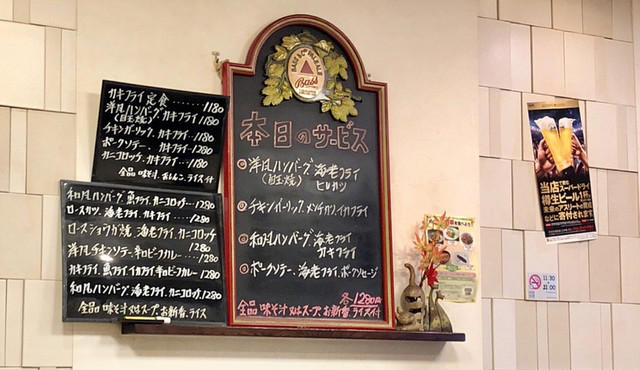 カキフライ定食……1180
洋風ハンバーグ カキフライ
(目玉焼) 1180
チキンガーリック、カキフライ…1180
ポークソテー、カキフライ…1280
カニコロッケ、カキフライ…1180
全品 味そ汁、おしんこ、ライス付
和風ハンバーグ 魚フライ、カニコロッケ…1280
ロースカツ、海老フライ、カキフライ…1280
ロースショウガ焼 海老フライ、カニコロッケ
1280
洋風チキンソテー 辛口ビーフカレー…1280
カキフライ、魚フライ、イカフライ 辛口ビーフカレー…1280
和風ハンバーグ、海老フライ、カニコロッケ、1280
全品 味そ汁又はスープ、お新香、ライス
Bass
本日のサービス
洋風ハンバーグ 海老フライ
(目玉焼) ヒレカツ
チキンガーリック、メンチカツ、イカフライ
和風ハンバーグ 海老フライ
カキフライ
ポークソテー、海老フライ、ポークソセージ
各1280円
全品 味そ汁又はスープ、お新香、ライス付
当店
スーパードライ
樽生ビール1杯
未来のアスリートの育成
などに寄付されます
11:30
21:00